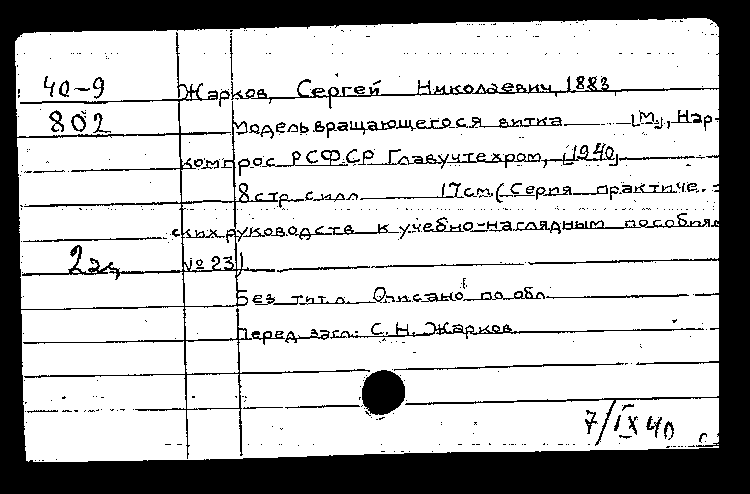 40-9 Жарков, Сергей Николаевич, 1883
802 Модель вращающегося витка [М.], Нар-
компрос РСФСР Главучтехпром, [1940]
8 стр. с илл. 17 см. (Серия практиче-
ских руководств к учебно-наглядным пособиям
2 эк. № 23)
Без тит. л. Описано по обл.
Перед загл.: С. Н. Жарков.
7/IX 40